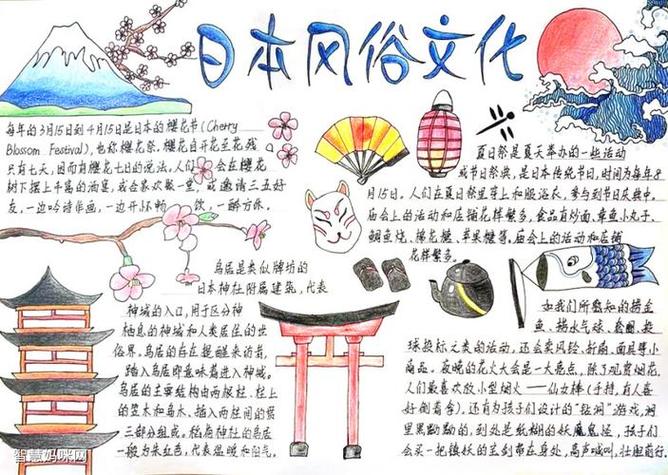 日本风俗文化
每年的3月15日到4月15日是日本的樱花节(Cherry
Blossom Festival),也称樱花祭,樱花自开至花残
只有七天,因而有樱花七日的说法,人们 会在樱花
树下摆上丰富的酒宴,或合家欢聚一堂,或邀请三五好
友,一边吟诗作画,一边开怀畅饮,一醉方休。
夏日祭是夏天举办的一些活动
或节日祭典,是日本传统节日,时间为每年8
月15日。人们在夏日祭里穿上和服浴衣,参与到节日庆典中。
庙会上的活动和店铺花样繁多。食品有炒面、章鱼小丸子、
鲷鱼烧、棉花糖、苹果糖等。庙会上的活动和店铺
花样繁多。
鸟居是类似牌坊的
日本神社附属建筑,代表
神域的入口,用于区分神
栖息的神域和人类居住的世
俗界。鸟居的存在是提醒来访者,
踏入鸟居即意味着进入神域。
鸟居的主要结构由两根柱、柱上
的笠木和岛木、插入两柱间的贯
三部分组成。稻荷神社的鸟居
一般为朱红色,代表温暖和阳气。
如我们所熟知的捞金
鱼、捞水气球、套圈、投
球投标之类的活动,还会卖风铃、折扇、面具等小
商品。夜晚的花火大会是一大亮点,除了观赏烟花,
人们最喜欢放小型烟火——仙女棒(手持,有人喜
好倒着拿),还有为孩子们设计的"砍洞"游戏,洞
里黑黝黝的,到处是纸糊的妖魔鬼怪,孩子们
会买一把镇妖的兰剑带在身处,高声喊叫,壮胆前行。
智慧妈咪网